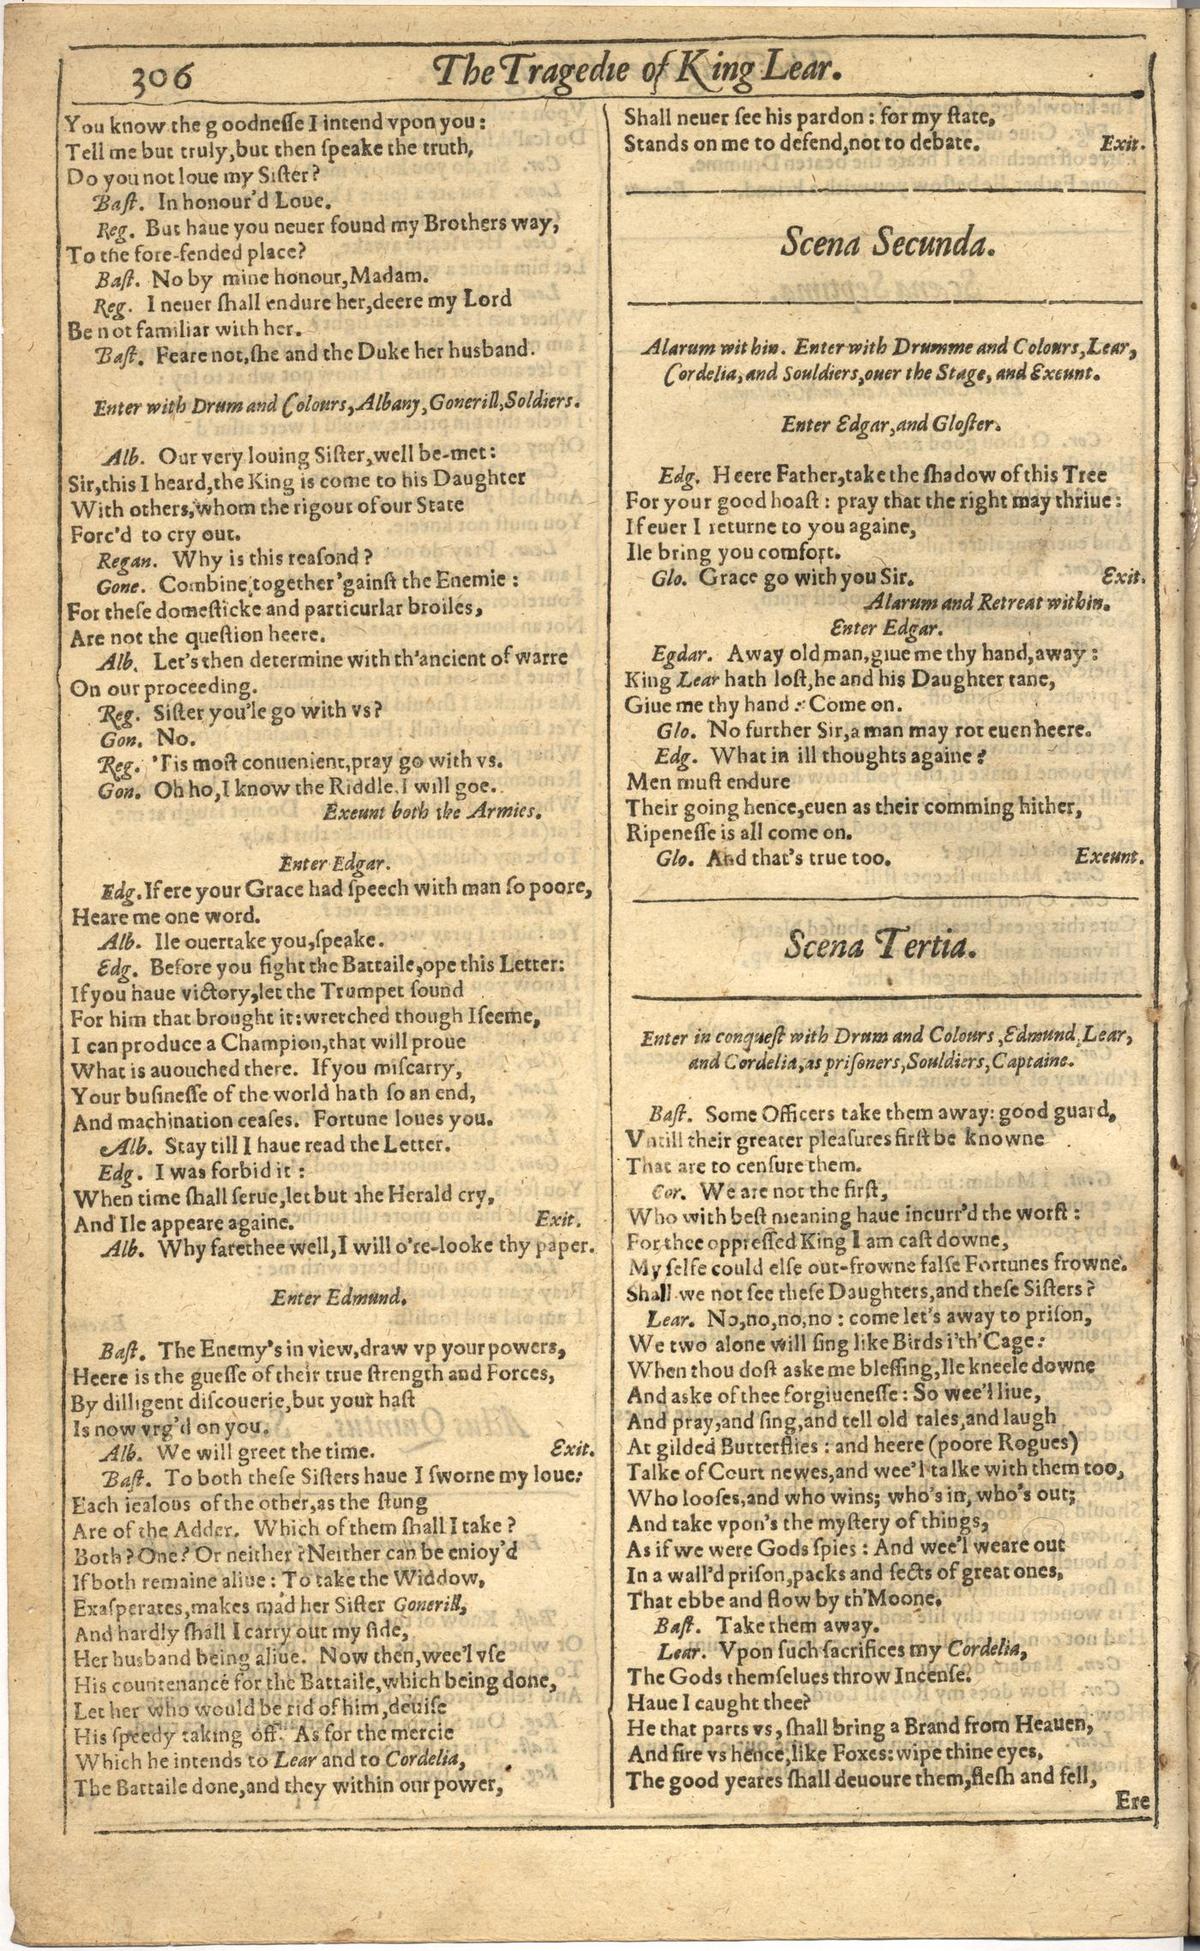 306
The Tragedie of King Lear.
You know the goodnesse I intend vpon you:
Tell me but truly, but then speake the truth,
Do you not loue my Sister?
Bast. In honour'd Loue.
Reg. But haue you neuer found my Brothers way,
To the fore-fended place?
Bast. No by mine honour, Madam.
Reg. I neuer shall endure her, deere my Lord
Be not familiar with her.
Bast. Feare not, she and the Duke her husband.
Enter with Drum and Colours, Albany, Gonerill, Soldiers.
Alb. Our very louing Sister, well be-met:
Sir, this I heard, the King is come to his Daughter
With others, whom the rigour of our State
Forc'd to cry out.
Regan. Why is this reasond?
Gone. Combine together 'gainst the Enemie:
For these domesticke and particurlar broiles,
Are not the question heere.
Alb. Let's then determine with th'ancient of warre
On our proceeding.
Reg. Sister you'le go with vs?
Gon. No.
Reg. 'Tis most conuenient, pray go with vs.
Gon. Oh ho, I know the Riddle. I will goe.
Exeunt both the Armies.
Enter Edgar.
Edg. If ere your Grace had speech with man so poore,
Heare me one word.
Alb. Ile ouertake you, speake.
Edg. Before you fight the Battaile, ope this Letter:
If you haue victory, let the Trumpet sound
For him that brought it: wretched though I seeme,
I can produce a Champion, that will proue
What is auouched there. If you miscarry,
Your businesse of the world hath so an end,
And machination ceases. Fortune loues you.
Alb. Stay till I haue read the Letter.
Edg. I was forbid it:
When time shall serue, let but the Herald cry,
And Ile appeare againe. Exit.
Alb. Why farethee well, I will o're-looke thy paper.
Enter Edmund.
Bast. The Enemy's in view, draw vp your powers,
Heere is the guesse of their true strength and Forces,
By dilligent discouerie, but your hast
Is now vrg'd on you.
Alb. We will greet the time. Exit.
Bast. To both these Sisters haue I sworne my loue:
Each iealous of the other, as the stung
Are of the Adder. Which of them shall I take?
Both? One? Or neither? Neither can be enioy'd
If both remaine aliue: To take the Widdow,
Exasperates, makes mad her Sister Gonerill,
And hardly shall I carry out my side,
Her husband being aliue. Now then, wee'l vse
His countenance for the Battaile, which being done,
Let her who would be rid of him, deuise
His speedy taking off. As for the mercie
Which he intends to Lear and to Cordelia,
The Battaile done, and they within our power,
Shall neuer see his pardon: for my state,
Stands on me to defend, not to debate. Exit.
Scena Secunda.
Alarum within. Enter with Drumme and Colours, Lear,
Cordelia, and Souldiers, ouer the Stage, and Exeunt.
Enter Edgar, and Gloster.
Edg. Heere Father, take the shadow of this Tree
For your good hoast: pray that the right may thriue:
If euer I returne to you againe,
Ile bring you comfort.
Glo. Grace go with you Sir. Exit.
Alarum and Retreat within.
Enter Edgar.
Egdar. Away old man, giue me thy hand, away:
King Lear hath lost, he and his Daughter tane,
Giue me thy hand: Come on.
Glo. No further Sir, a man may rot euen heere.
Edg. What in ill thoughts againe?
Men must endure
Their going hence, euen as their comming hither,
Ripenesse is all come on.
Glo. And that's true too. Exeunt.
Scena Tertia.
Enter in conquest with Drum and Colours, Edmund, Lear,
and Cordelia, as prisoners, Souldiers, Captaine.
Bast. Some Officers take them away: good guard,
Vntill their greater pleasures first be knowne
That are to censure them.
Cor. We are not the first,
Who with best meaning haue incurr'd the worst:
For thee oppressed King I am cast downe,
My selfe could else out-frowne false Fortunes frowne.
Shall we not see these Daughters, and these Sisters?
Lear. No, no, no, no: come let's away to prison,
We two alone will sing like Birds i'th'Cage:
When thou dost aske me blessing, Ile kneele downe
And aske of thee forgiuenesse: So wee'l liue,
And pray, and sing, and tell old tales, and laugh
At gilded Butterflies: and heere (poore Rogues)
Talke of Court newes, and wee'l talke with them too,
Who looses, and who wins; who's in, who's out;
And take vpon's the mystery of things,
As if we were Gods spies: And wee'l weare out
In a wall'd prison, packs and sects of great ones,
That ebbe and flow by th'Moone.
Bast. Take them away.
Lear. Vpon such sacrifices my Cordelia,
The Gods themselues throw Incense.
Haue I caught thee?
He that parts vs, shall bring a Brand from Heauen,
And fire vs hence, like Foxes: wipe thine eyes,
The good yeares shall deuoure them, flesh and fell,
Ere